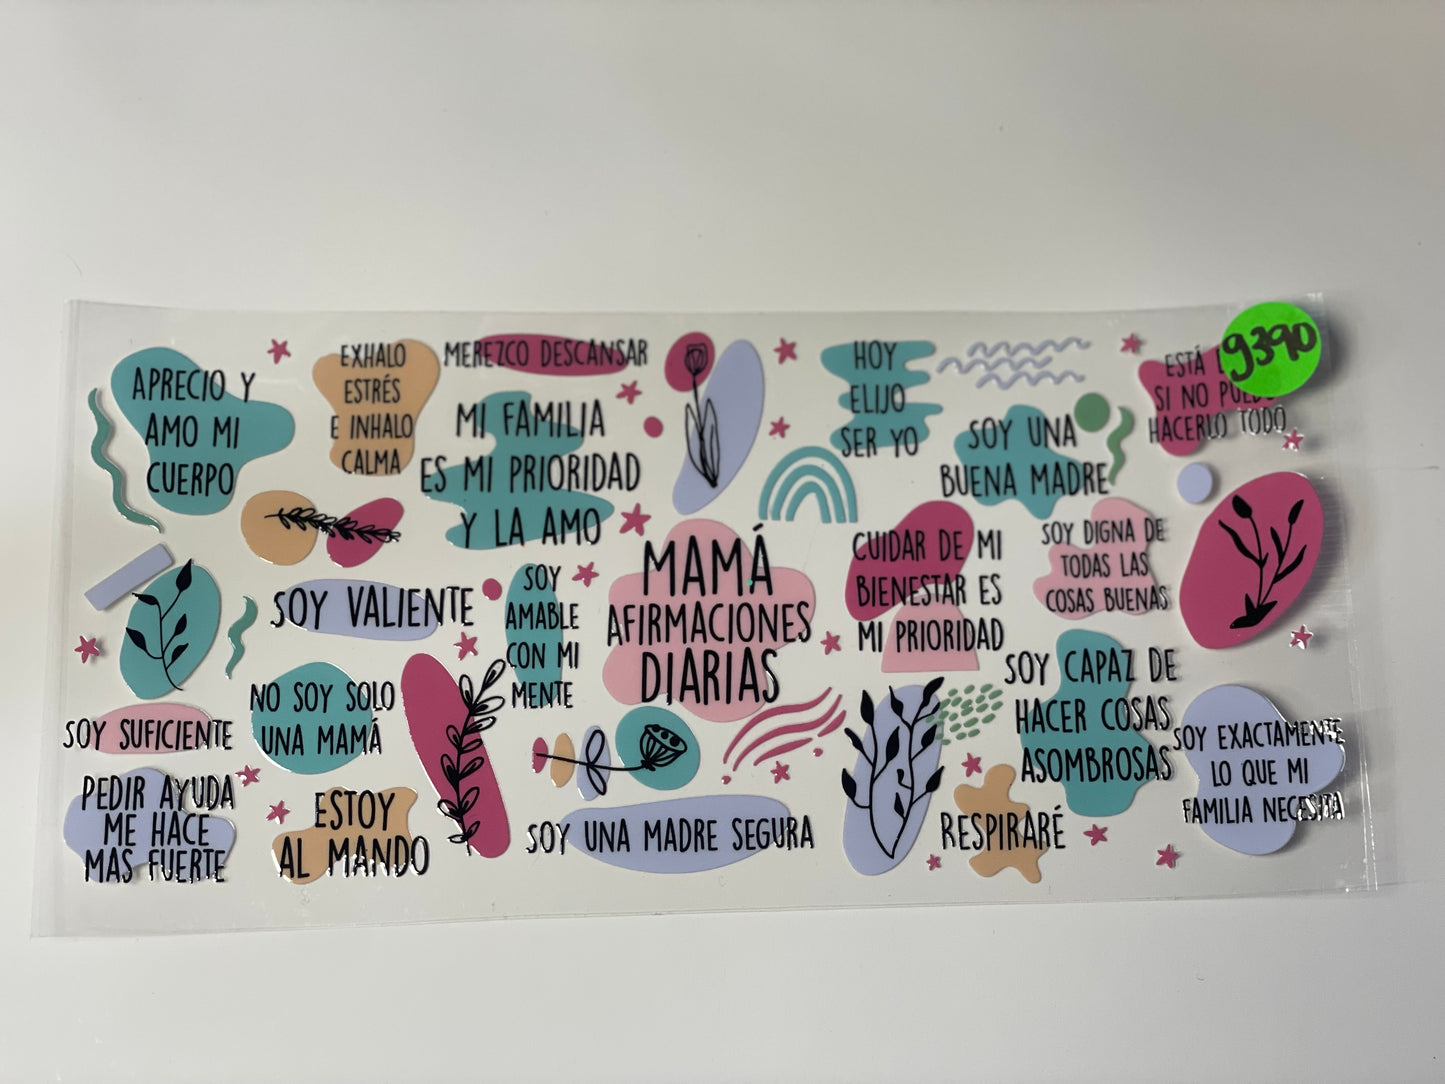 APRECIO Y
AMO MI
CUERPO
EXHALO
ESTRÉS
E INHALO
CALMA
MEREZCO DESCANSAR
MI FAMILIA
ES MI PRIORIDAD
Y LA AMO
HOY
ELIJO
SER YO
SOY UNA
BUENA MADRE
ESTÁ
SI NO
HACERLO TODO
g390
SOY VALIENTE
SOY
AMABLE
CON MI
MENTE
MAMÁ
AFIRMACIONES
DIARIAS
CUIDAR DE MI
BIENESTAR ES
MI PRIORIDAD
SOY DIGNA DE
TODAS LAS
COSAS BUENAS
SOY SUFICIENTE
NO SOY SOLO
UNA MAMÁ
SOY CAPAZ DE
HACER COSAS
ASOMBROSAS
SOY EXACTAMENTE
LO QUE MI
FAMILIA NECESITA
PEDIR AYUDA
ME HACE
MAS FUERTE
ESTOY
AL MANDO
SOY UNA MADRE SEGURA
RESPIRARÉ